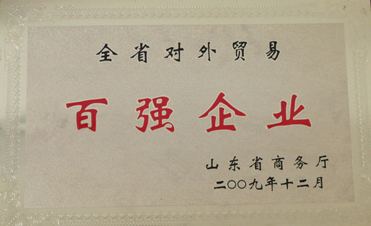 全省对外贸易
百强企业
山东省商务厅
二〇〇九年十二月